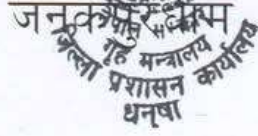 जनकपुर धाम
गृह मन्त्रालय
जिल्ला प्रशासन कार्यालय
धनुषा